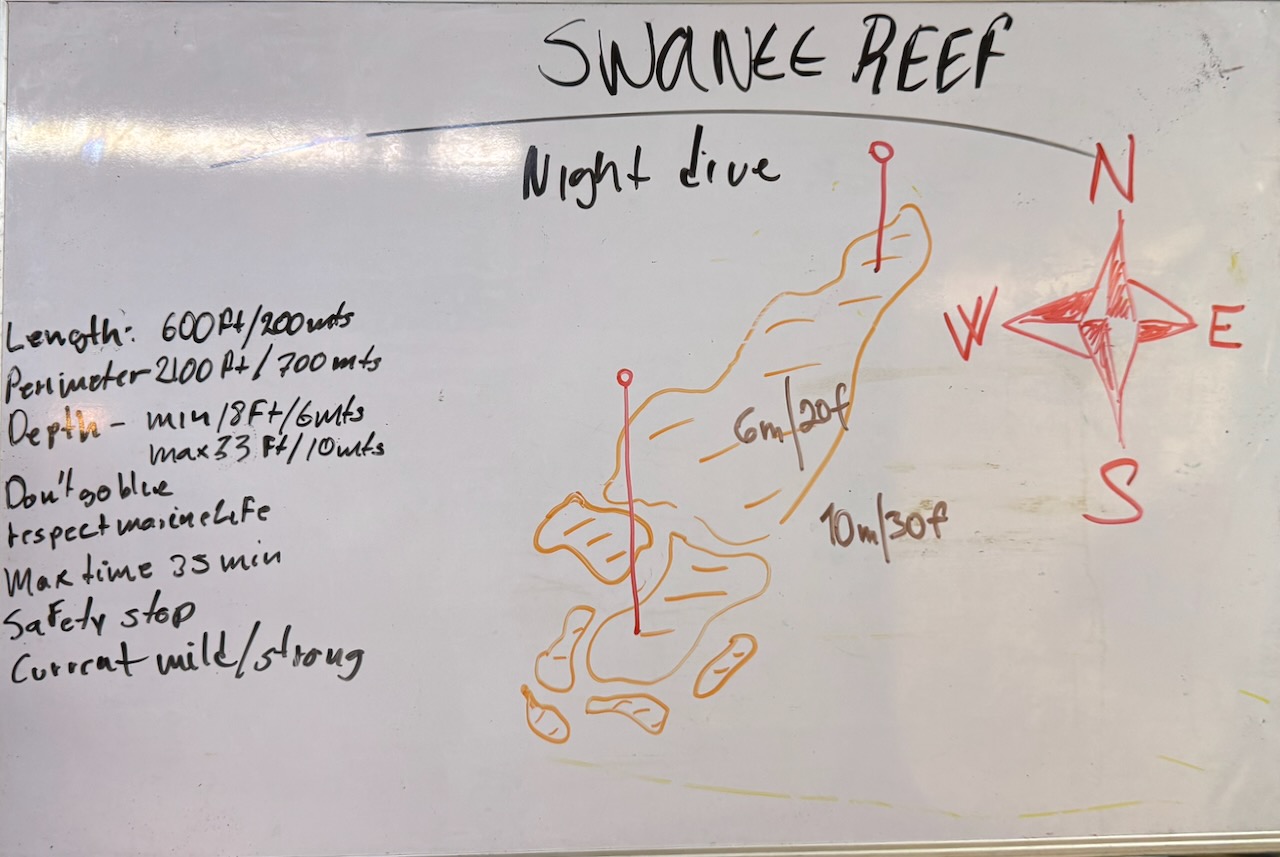 SWANEE REEF
Night dive
N
W E
S
Length: 600 Ft/200 mts
Perimeter 2100 Ft/700 mts
Depth - min 18 Ft/6 mts
max 33 Ft/10 mts
Don't go blue
respect marine Life
Max time 35 min
Safety stop
Current mild/strong
6m/20f
10m/30f